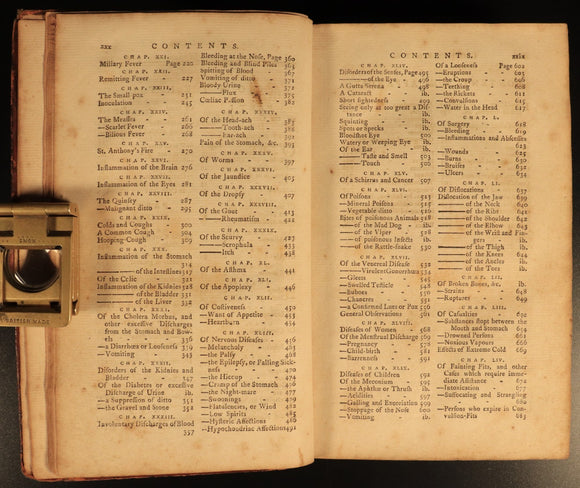 xxx CONTENTS.
CHAP. XXI.
Miliary Fever Page 220
CHAP. XXII.
Remitting Fever - 227
CHAP. XXIII.
The Small-pox 231
Inoculation - 245
CHAP. XXIV.
The Measles - 261
—Scarlet Fever - 266
—Bilious Fever - 268
CHAP. XXV.
St. Anthony's Fire - 270
CHAP. XXVI.
Inflammation of the Brain 276
CHAP. XXVII.
Inflammation of the Eyes 281
CHAP. XXVIII.
The Quinsey - 287
—Malignant ditto - 295
CHAP. XXIX.
Colds and Coughs 300
A Common Cough - 304
Hooping-Cough - 309
CHAP. XXX.
Inflammation of the Stomach
of the Intestines
Of the Colic - 321
Inflammation of the Kidneys 328
of the Bladder 331
of the Liver 332
CHAP. XXXI.
Of the Cholera Morbus, and
other excessive Discharges
from the Stomach and Bow-
els - 336
—a Diarrhœa or Looseness 339
—Vomiting - 343
CHAP. XXXII.
Disorders of the Kidneys and
Bladder - 347
Of the Diabetes or excessive
Discharge of Urine ib.
—a Suppression of ditto 351
—the Gravel and Stone 352
CHAP. XXXIII.
Involuntary Discharges of Blood
357
Bleeding at the Nose, Page 360
Bleeding and Blind Piles
Spitting of Blood - 367
Vomiting of ditto
Bloody Urine
—Flux 375
Cœliac Passion - 382
CHAP. XXXIV.
Of the Head-ach - 385
Tooth-ach
Ear-ach 392
Pain of the Stomach, &c. 393
Of Worms - 397
Of the Jaundice - 405
Of the Dropsy - 407
Of the Gout - 413
Rheumatism 422
CHAP. XXXIX.
Of the Scurvy - 427
Scrophula
Itch - 438
CHAP. XL.
Of the Asthma - 441
CHAP. XLI.
Of the Apoplexy - 446
CHAP. XLII.
Of Costiveness - 459
—Want of Appetite
—Heartburn - 454
CHAP. XLIII.
Of Nervous Diseases - 456
—Melancholy - 463
—the Palsy - 468
—the Epilepsy, or Falling Sick-
ness - 470
—the Hiccup - 474
—Cramp of the Stomach 476
—the Night-mare - 477
—Swoonings - 479
—Flatulencies, or Wind 482
—Low Spirits - 485
—Hysteric Affections 486
—Hypochondriac Affections 491
CONTENTS. xxix
CHAP. XLIV.
Disorders of the Senses, Page 495
of the Eye - 496
A Gutta Serena - 498
A Cataract - ib.
Short sightedness - 499
Seeing only at too great a Dis-
tance - ib.
Squinting - ib.
Spots or specks - ib.
Bloodshot Eye - 500
Watery or Weeping Eye ib.
Of the Ear - ib.
Taste and Smell 503
Touch - 506
CHAP. XLV.
Of a Schirrus and Cancer 507
CHAP. XLVI.
Of Poisons - 513
—Mineral Poisons -
—Vegetable ditto - 516
Bites of poisonous Animals 518
of the Mad Dog - ib.
of the Viper - 528
of poisonous Insects ib.
of the Rattle-snake 530
CHAP. XLVII.
Of the Venereal Disease 532
Virulent Gonorrhœa 534
—Gleets
—Swelled Testicle 548
—Buboes - 550
—Chancres - 551
—a Confirmed Lues or Pox 556
General Observations 562
CHAP. XLVIII.
Diseases of Women 568
Of the Menstrual Discharge 569
—Pregnancy -
—Child-birth - 581
—Barrenness - 591
CHAP. XLIX.
Diseases of Children 592
Of the Meconium - 595
—the Aphthæ or Thrush ib.
—Acidities - 597
—Galling and Excoriation 599
—Stoppage of the Nose 600
—Vomiting - ib.
Of a Looseness Page 602
—Eruptions - 603
—the Croup - 606
—Teething - 608
—the Rickets - 611
—Convulsions - 615
—Water in the Head 617
CHAP. L.
Of Surgery - 618
—Bleeding - 619
—Inflammations and Abscesses
623
—Wounds - 625
—Burns - 630
—Bruises - 632
—Ulcers - 634
CHAP. LI.
Of Dislocations - 637
Dislocation of the Jaw 639
of the Neck 640
of the Ribs 641
of the Shoulder 642
of the Elbow 643
of the Wrist and Fin-
gers - ib.
of the Thigh ib.
of the Knees 644
of the Ancles ib.
of the Toes ib.
CHAP. LII.
Of Broken Bones, &c. ib.
—Strains - 648
—Ruptures - 649
CHAP. LIII.
Of Casualties - 652
—Substances stopt between the
Mouth and Stomach 654
—Drowned Persons
—Noxious Vapours 666
Effects of Extreme Cold 669
CHAP. LIV.
Of Fainting Fits, and other
Cases which require imme-
diate Assistance - 672
—Intoxication - 677
—Suffocating and Strangling
680
—Persons who expire in Con-
vulsion-Fits - 683